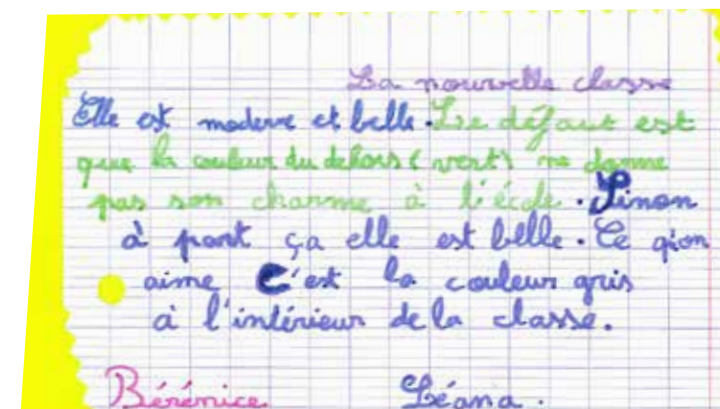 La nouvelle classe
Elle est moderne et belle. Le défaut est
que la couleur du dehors (vert) ne donne
pas son charme à l'école. Sinon
à part ça elle est belle. Ce qion
aime c'est la couleur gris
à l'intérieur de la classe.
Bérénice Léana.